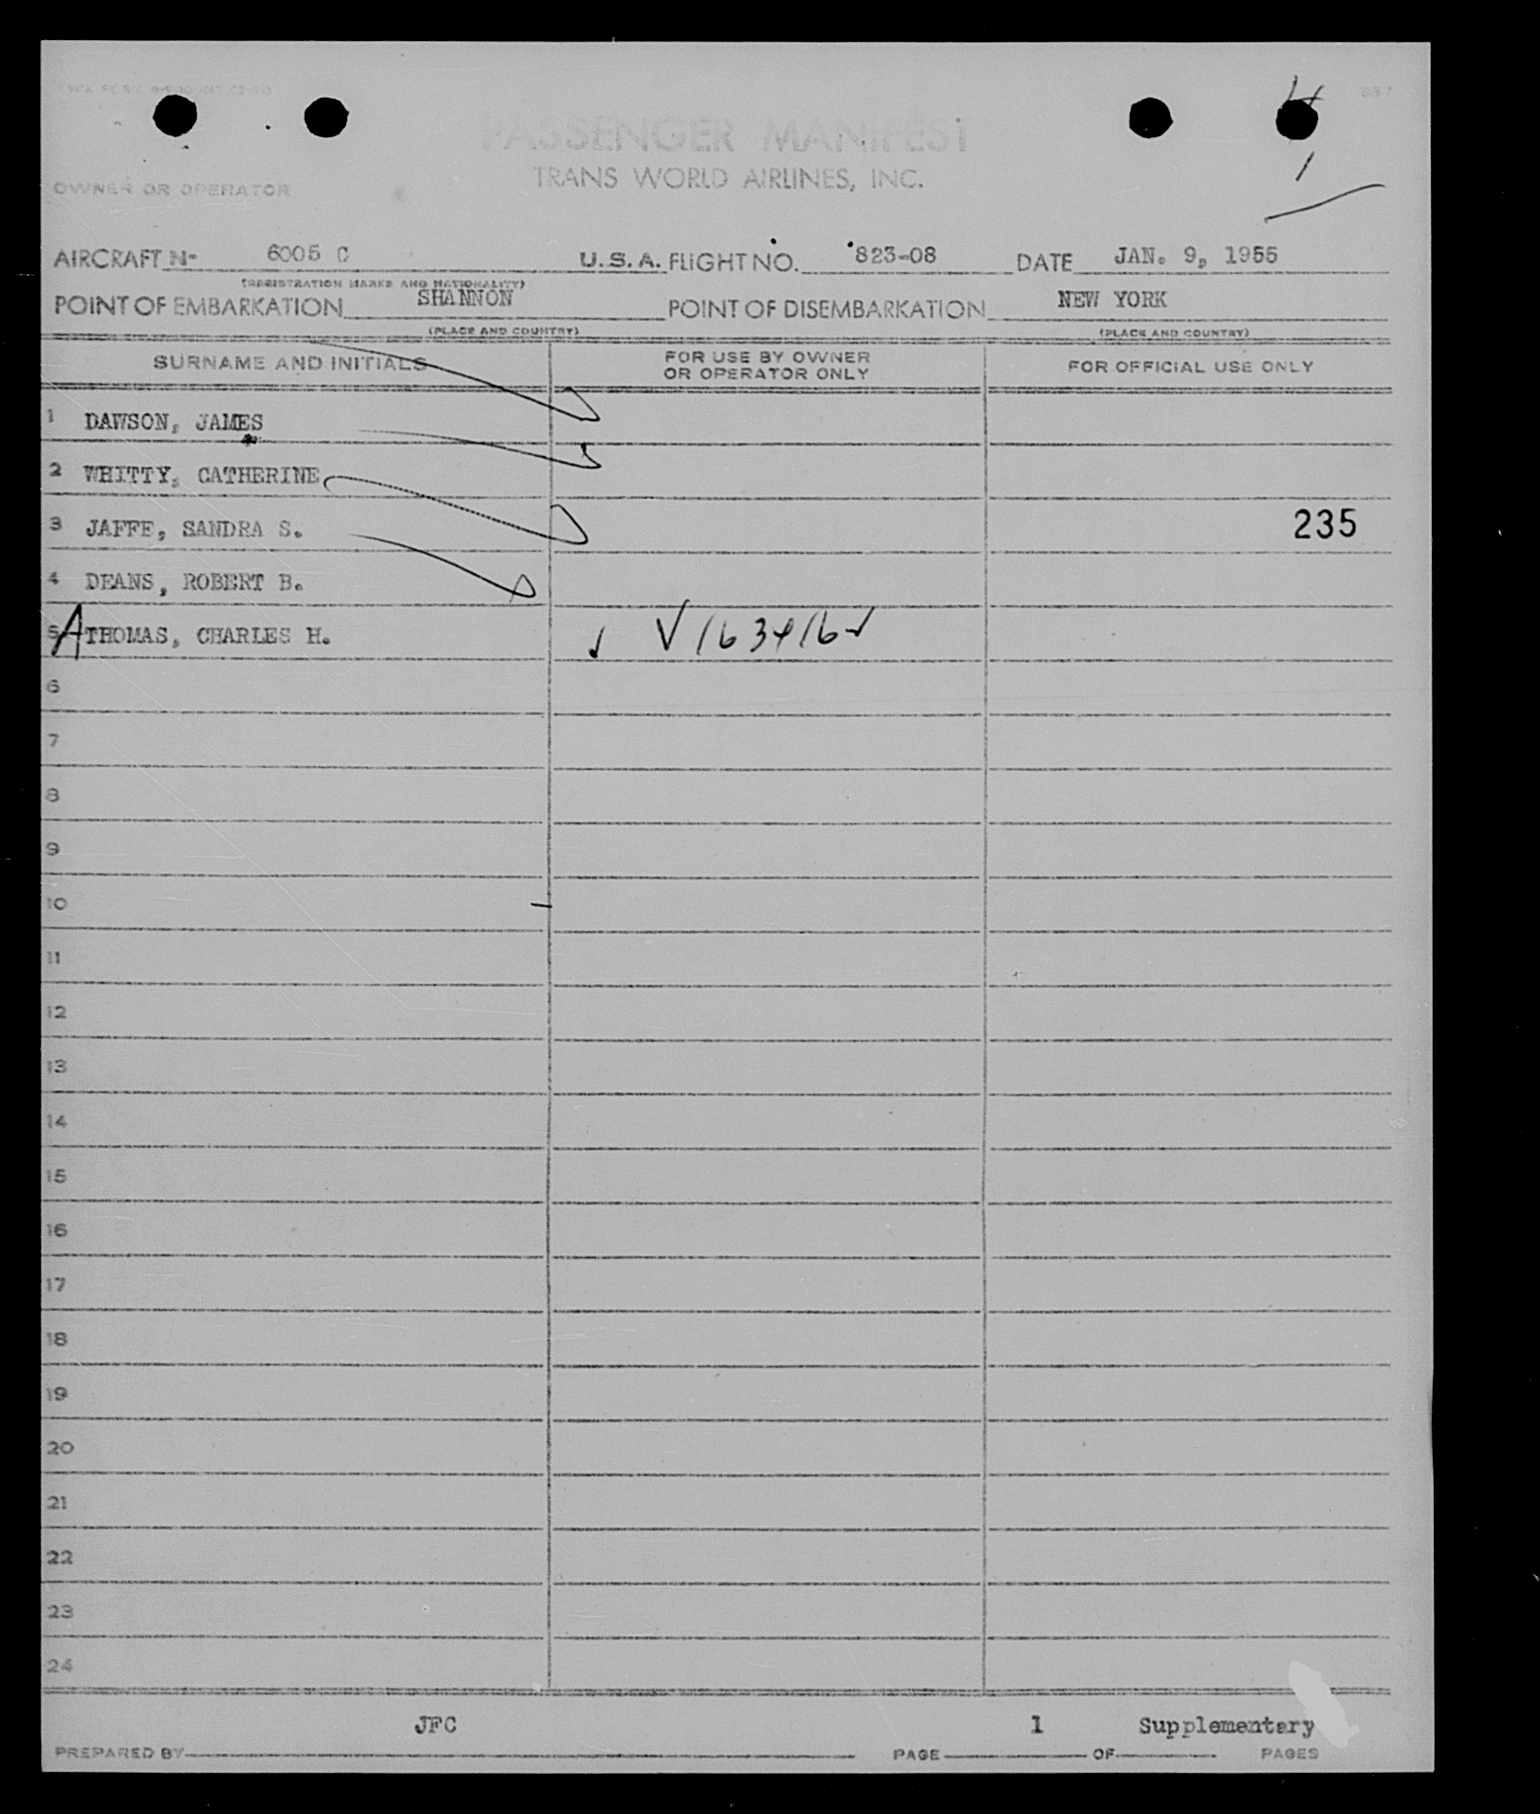 4
PASSENGER MANIFEST
TRANS WORLD AIRLINES, INC.
1
OWNER OR OPERATOR
AIRCRAFT N- 6005 C U.S.A. FLIGHT NO. 823-08 DATE JAN. 9, 1955
(REGISTRATION MARKS AND NATIONALITY)
POINT OF EMBARKATION SHANNON POINT OF DISEMBARKATION NEW YORK
(PLACE AND COUNTRY) (PLACE AND COUNTRY)
SURNAME AND INITIALS FOR USE BY OWNER OR OPERATOR ONLY FOR OFFICIAL USE ONLY
1 DAWSON, JAMES
2 WHITTY, CATHERINE
3 JAFFE, SANDRA S. 235
4 DEANS, ROBERT B.
5 A THOMAS, CHARLES H. ✓ ✓ 163416 ✓
6
7
8
9
10
11
12
13
14
15
16
17
18
19
20
21
22
23
24
JFC 1 Supplementary
PREPARED BY PAGE OF PAGES